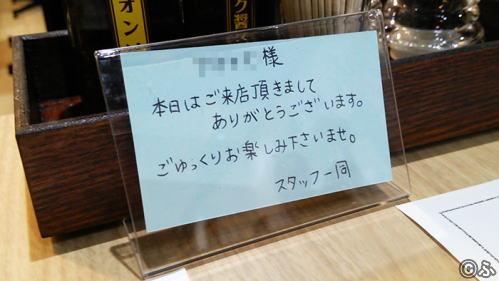 オン
ク醤
様
本日はご来店頂きまして
ありがとうございます。
ごゆっくりお楽しみ下さいませ。
スタッフ一同
©ふ